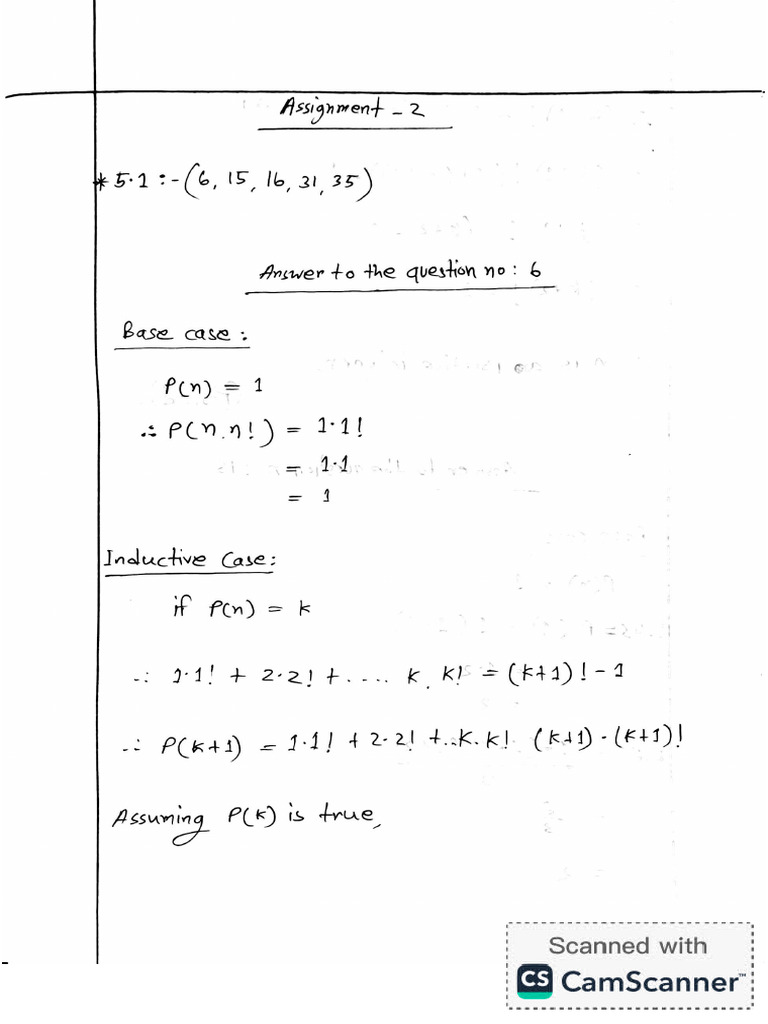 Assignment - 2
* 5.1 :- (6, 15, 16, 31, 35)
Answer to the question no: 6
Base case:
P(n) = 1
∴ P(n.n!) = 1·1!
= 1·1
= 1
Inductive Case:
if P(n) = k
∴ 1·1! + 2·2! + .... k. k! = (k+1)! - 1
∴ P(k+1) = 1·1! + 2·2! + ..k.k! (k+1)·(k+1)!
Assuming P(k) is true,
Scanned with
CS CamScanner™